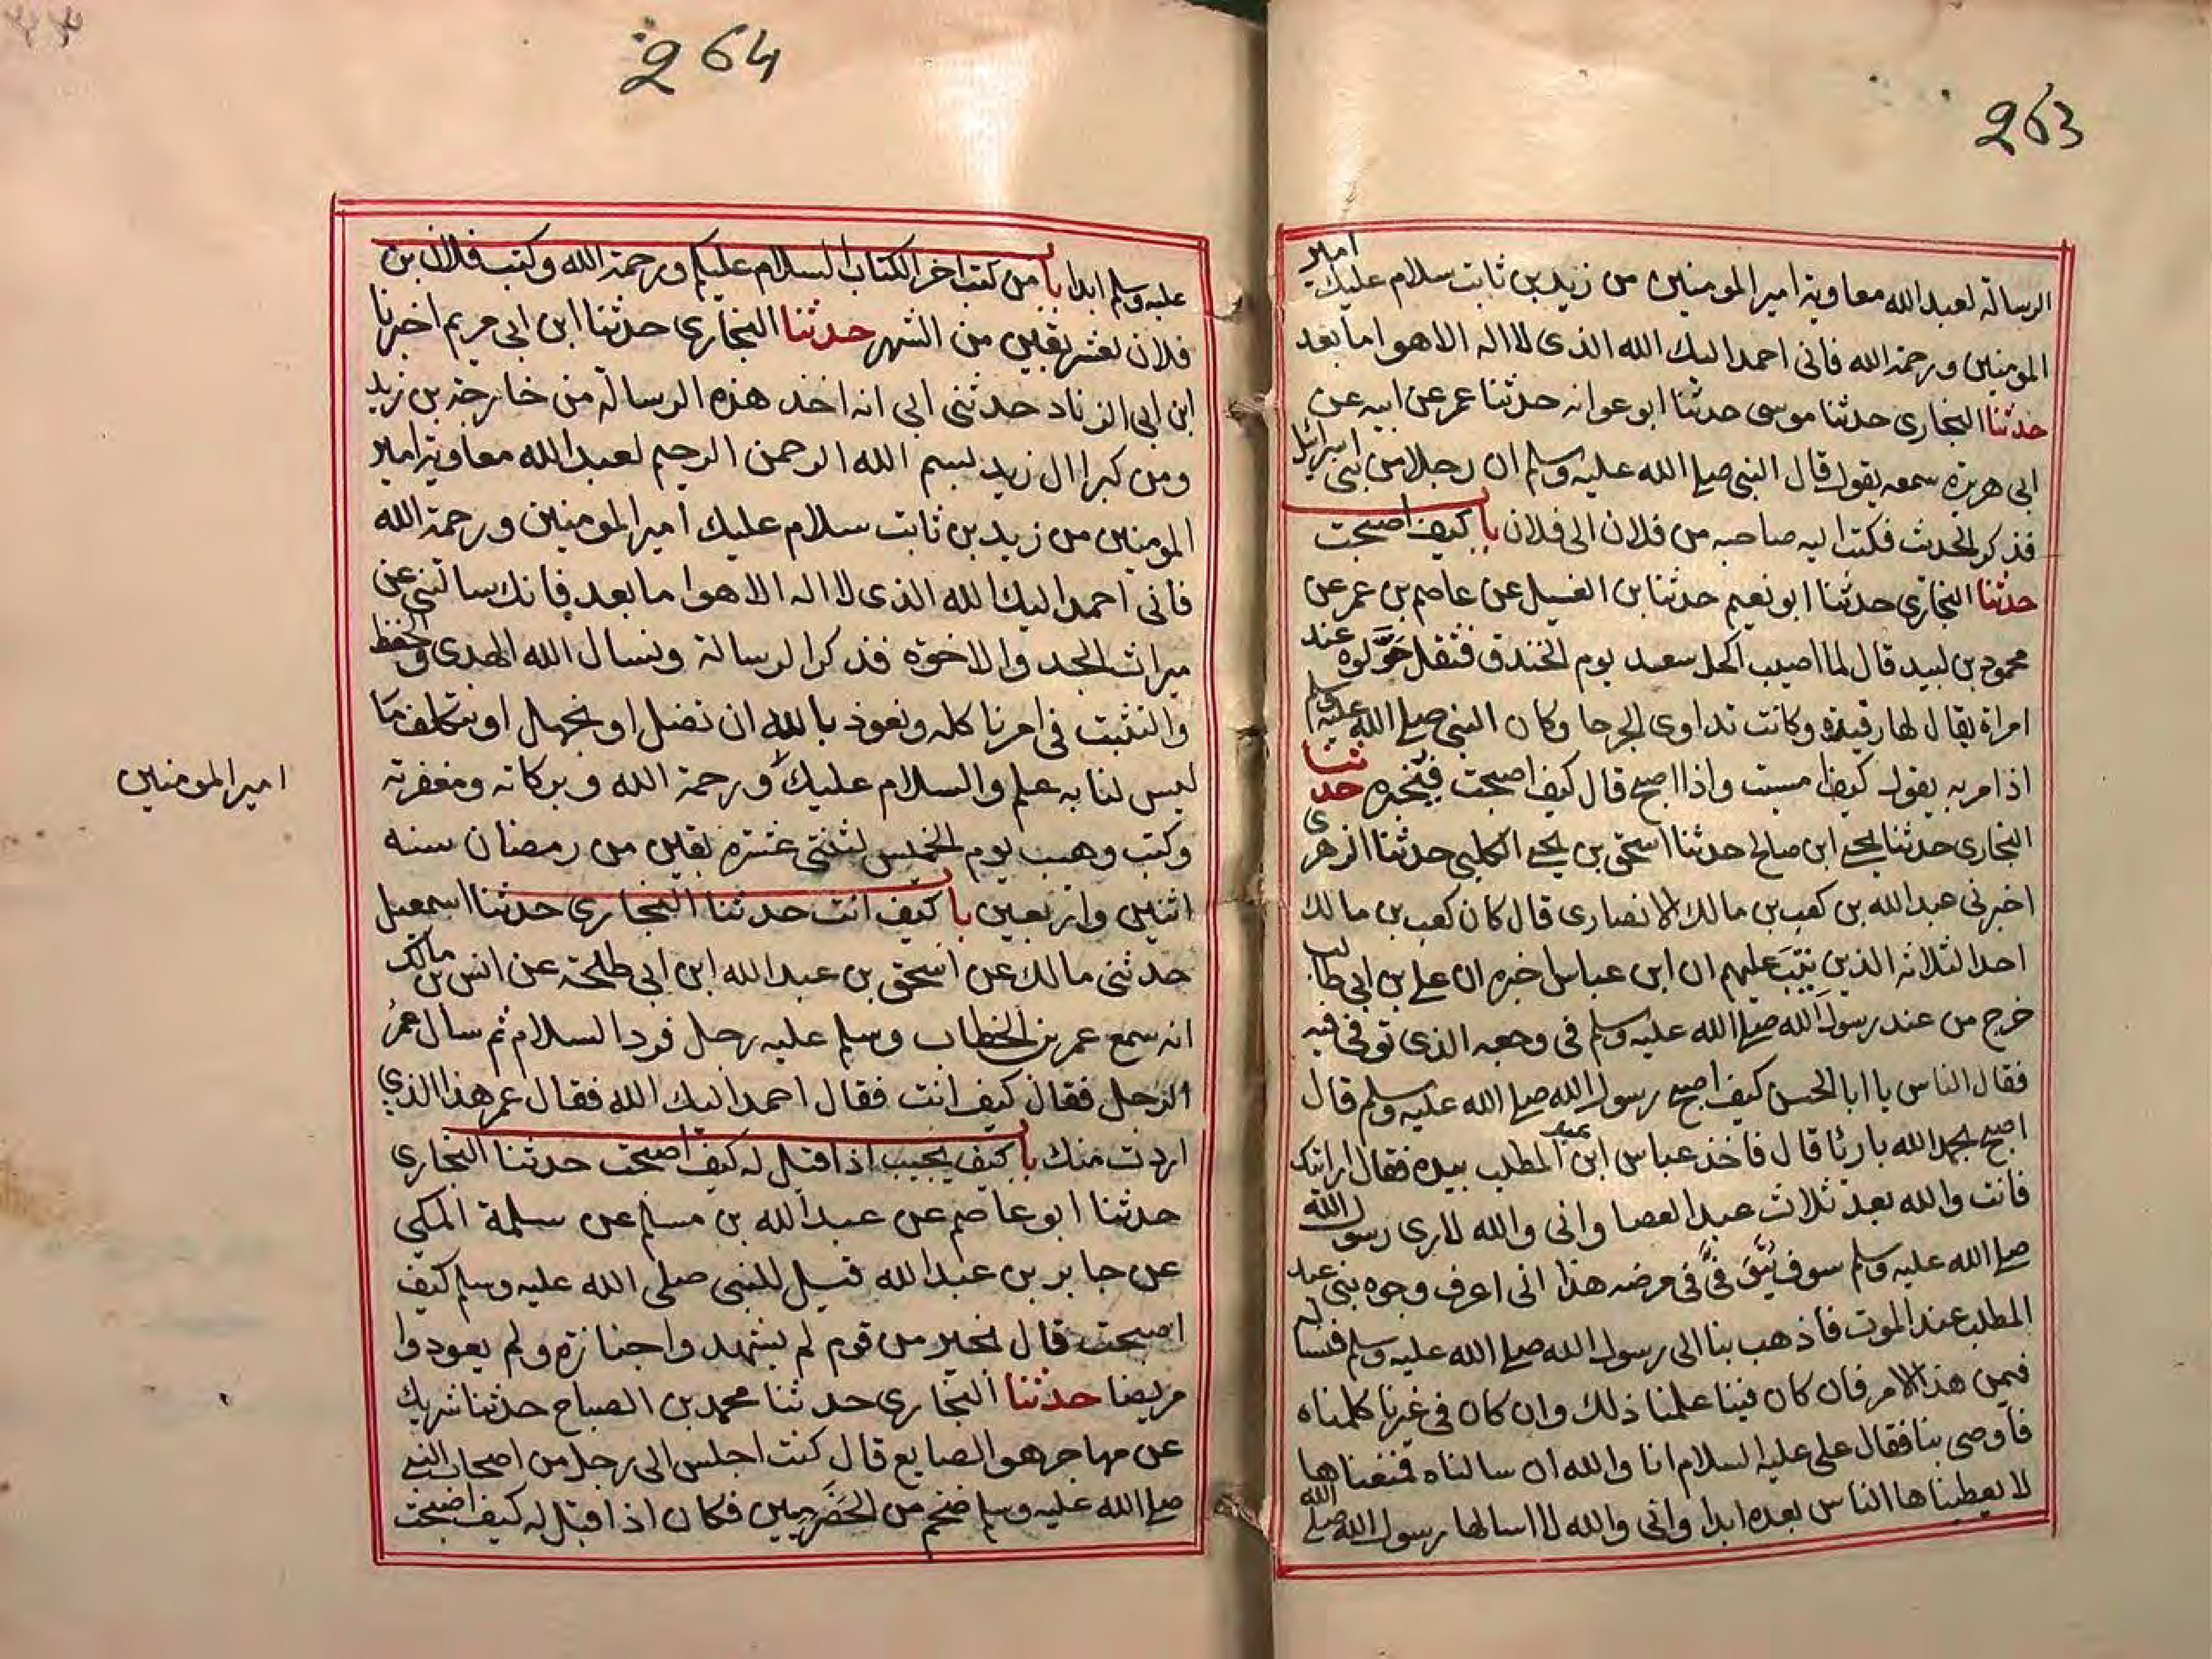 263
الرسالة لعبد الله معاوية امير المومنين من زيد بن ثابت سلام عليك امير
المومنين ورحمة الله فانى احمد اليك الله الذى لا اله الا هو اما بعد
حدثنا البخارى حدثنا موسى حدثنا ابو عوانه حدثنا عمر عن ابيه عن
ابى هريرة سمعه يقول قال النبى صلى الله عليه وسلم ان رجلا من بنى اسرائيل
فذكر الحدث فكتب اليه صاحبه من فلان الى فلان با كيف اصبحت
حدثنا البخارى حدثنا ابو نعيم حدثنا بن الغسيل عن عاصم بن عمر عن
محمود بن لبيد قال لما اصيب اكحل سعيد يوم الخندق فثقل حَوَّلوه عند
امراة يقال لها رقيدة وكانت تداوى الجرحا وكان النبى صلى الله عليه وسلم
اذا مر به يقول كيف امسيت واذا اصبح قال كيف اصبحت فيخبره حدثنا
البخارى حدثنا يحيى ابن صالح حدثنا اسحق بن يحيى الكلبى حدثنا الزهرى
اخبرنى عبد الله بن كعب بن مالك الانصارى قال كان كعب بن مالك
احد الثلاثه الذين تيب عليهم ان ابن عباس اخبره ان على بن ابى طالب
خرج من عند رسول الله صلى الله عليه وسلم فى وجعه الذى توفى فيه
فقال الناس يا ابا الحسن كيف اصبح رسول الله صلى الله عليه وسلم قال
اصبح بحمد الله بارئا قال فاخذ عباس ابن عبد المطلب بيده فقال ارايتك
فانت والله بعد ثلاث عبد العصا وانى والله لارى رسول الله
صلى الله عليه وسلم سوف يتوفى فى مرضه هذا انى اعرف وجوه بنى عبد
المطلب عند الموت فاذهب بنا الى رسول الله صلى الله عليه وسلم فنساله
فيمن هذا الامر فان كان فينا علمنا ذلك وان كان فى غيرنا كلمناه
فاوصى بنا فقال على عليه السلام انا والله ان سالناه فمنعناها
لا يعطيناها الناس بعده ابدا وانى والله لا اسالها رسول الله صلى الله
264
عليه وسلم ابدا با من كتب اخر الكتاب السلام عليكم ورحمة الله وكتب فلان بن
فلان لعشر بقين من الشهر حدثنا البخارى حدثنا ابن ابى مريم اخبرنا
ابن ابى الزناد حدثنى ابى انه اخذ هذه الرسالة من خارجة بن زيد
ومن كبرا ال زيد بسم الله الرحمن الرحيم لعبد الله معاوية امير
المومنين من زيد بن ثابت سلام عليك امير المومنين ورحمة الله
فانى احمد اليك الله الذى لا اله الا هو اما بعد فانك سالتنى عن
ميراث الجد والاخوة فذكر الرسالة ونسال الله الهدى والحفظ
والتثبت فى امرنا كله ونعوذ بالله ان نضل او نجهل او نتكلف ما
ليس لنا به علم والسلام عليك ورحمة الله وبركاته ومغفرته
امير المومنين
وكتب وهيب يوم الخميس لثنتى عشرة بقين من رمضان سنه
اثنين واربعين با كيف انت حدثنا البخارى حدثنا اسمعيل
حدثنى مالك عن اسحق بن عبد الله ابن ابى طلحة عن انس بن مالك
انه سمع عمر بن الخطاب وسلم عليه رجل فرد السلام ثم سال عمر
الرجل فقال كيف انت فقال احمد اليك الله فقال عمر هذا الذى
اردت منك با كيف يجيب اذا قيل له كيف اصبحت حدثنا البخارى
حدثنا ابو عاصم عن عبد الله بن مسلم عن سلمة المكى
عن جابر بن عبد الله قيل للنبى صلى الله عليه وسلم كيف
اصبحت قال بخير من قوم لم يشهدوا جنازة ولم يعودوا
مريضا حدثنا البخارى حدثنا محمد بن الصباح حدثنا شريك
عن مهاجر هو الصايع قال كنت اجلس الى رجل من اصحاب النبى
صلى الله عليه وسلم ضخم من الحَضرَميين فكان اذا قيل له كيف اصبحت